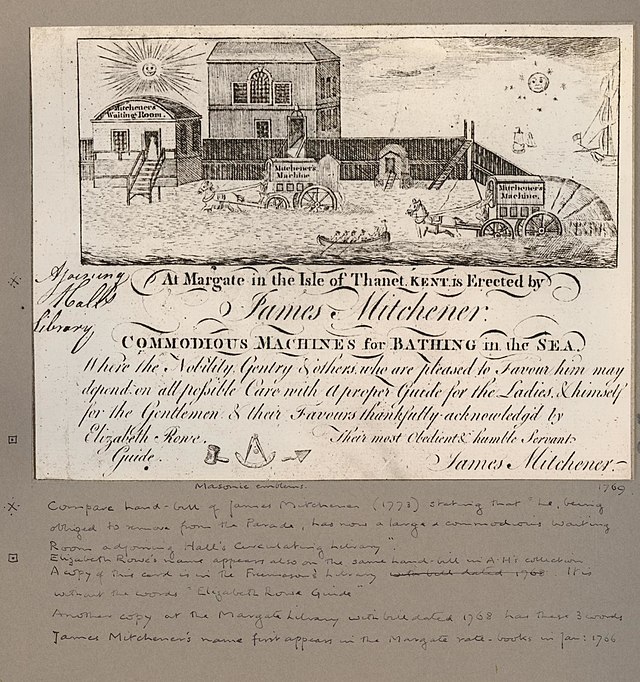 Mitchener's
Waiting Room.
Mitchener's
Machine
Mitchener's
Machine.
Adjoining
Hall's
Library
At Margate in the Isle of Thanet, KENT, is Erected by
James Mitchener
COMMODIOUS MACHINES for BATHING in the SEA.
Where the Nobility, Gentry & others, who are pleased to Favour him may
depend on all possible Care with a proper Guide for the Ladies, & himself
for the Gentlemen & their Favours thankfully acknowledg'd by
Elizabeth Rowe. Their most Obedient & humble Servant
Guide. James Mitchener.
Masonic emblems. 1769
Compare hand-bill of James Mitchener (1773) stating that "he, being
obliged to remove from the Parade, has now a large & commodious Waiting
Room adjoining Hall's Circulating Library".
Elizabeth Rowe's name appears also on the same hand-bill in A.H's collection
A copy of this card is in the Freemason's Library with bill dated 1768 It is
without the words "Elizabeth Rowe Guide"
Another copy at the Margate Library with bill dated 1768 has these 3 words
James Mitchener's name first appears in the Margate rate-books in Jan: 1766